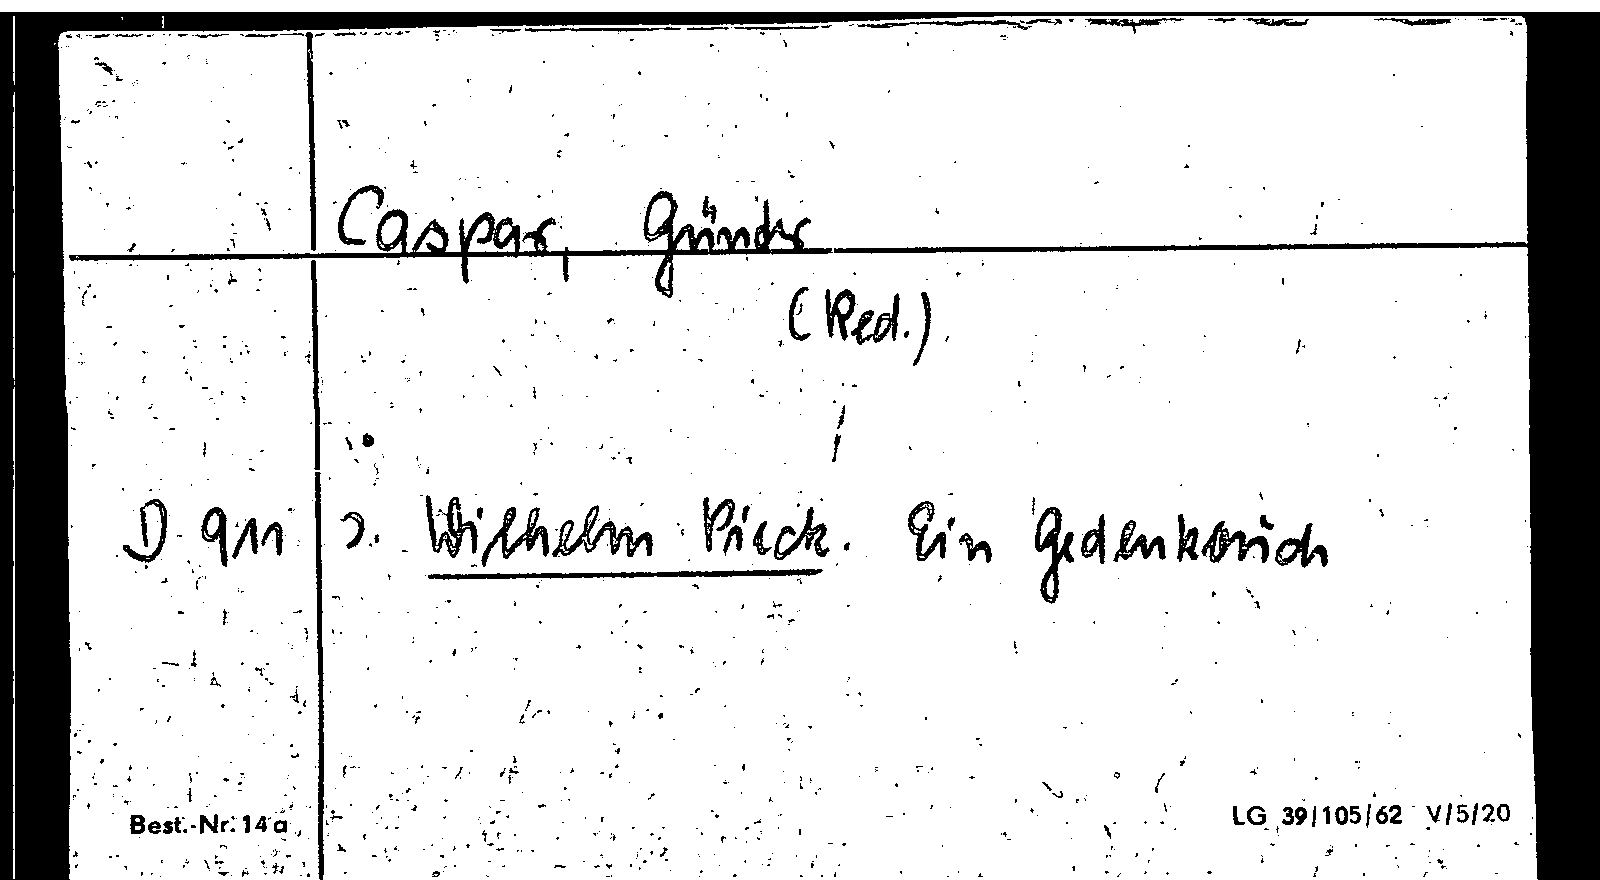 Caspar, Günter
(Red.)
D 911 s. Wilhelm Pieck. Ein Gedenkbuch
Best.-Nr. 14a LG 39/105/62 V/5/20